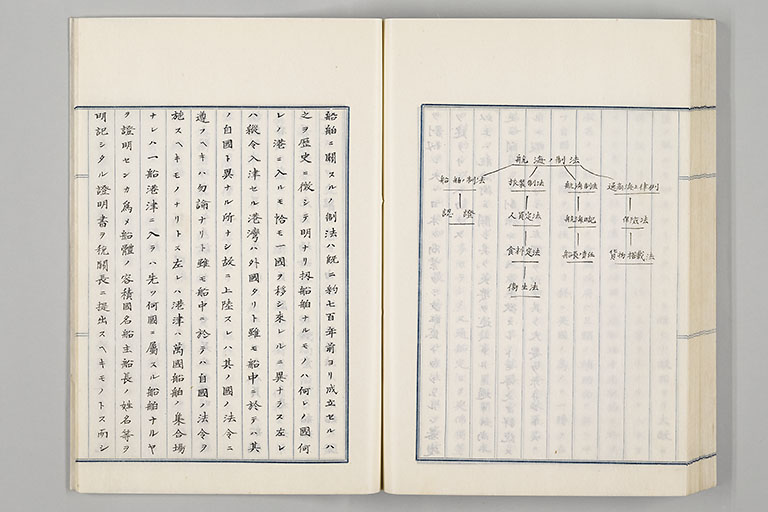 航海ノ制法
通商海上律例
保險法
貨物搭載法
航海制法
航海日記
船長責任
扮裝制法
人員定法
食料定法
衛生法
船舶ノ制法
認證
船舶ニ關スルノ制法ハ既ニ約七百年前ヨリ成立セルハ
之ヲ歴史ニ徴シテ明ナリ扨船舶ナルモノハ何レノ國何
レノ港ニ入ルモ恰モ一國ヲ移シ來レルニ異ナラス左レ
ハ縱令入津セル港灣ハ外國タリト雖モ船中ニ於テハ其
ノ自國ト異ナル所ナシ故ニ上陸スレハ其ノ國ノ法令ニ
遵フヘキハ勿論ナリト雖モ船中ニ於テハ自國ノ法令ヲ
施スヘキモノナリトス左レハ港津ハ萬國船舶ノ集合場
ナレハ一船港津ニ入ラハ先ツ何國ニ屬スル船舶ナルヤ
ヲ證明センカ爲メ船體ノ容積國名船主船長ノ姓名等ヲ
明記シタル證明書ヲ税關長ニ提出スヘキモノトス而シ